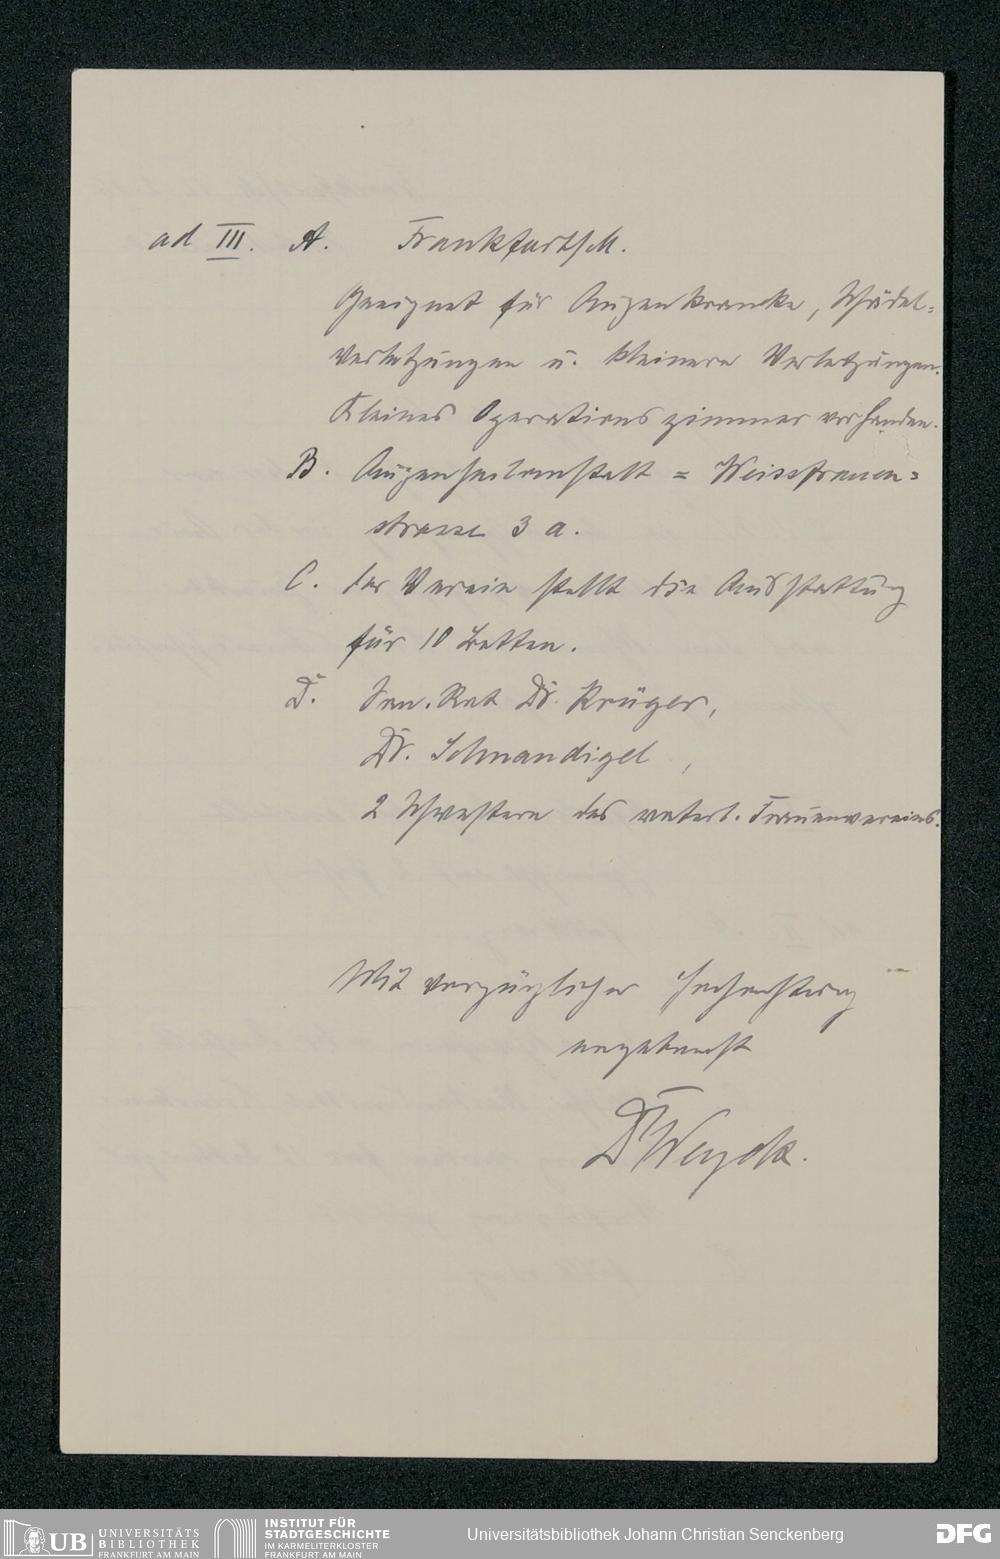 ad III. A. Frankfurt a/M.
Geeignet für Augenkranke, Schädel-
verletzungen u. kleinere Verletzungen.
Kleines Operationszimmer vorhanden.
B. Augenheilanstalt = Weissfrauen-
strasse 3 a.
C. der Verein stellt die Ausstattung
für 10 Betten.
D. San. Rat Dr. Krüger,
Dr. Schnaudigel,
2 Schwestern des vaterl. Frauenvereins.
Mit vorzüglicher Hochachtung
ergebenst
Dr
UB UNIVERSITÄTS
BIBLIOTHEK
FRANKFURT AM MAIN
INSTITUT FÜR
STADTGESCHICHTE
IM KARMELITERKLOSTER
FRANKFURT AM MAIN
Universitätsbibliothek Johann Christian Senckenberg
DFG